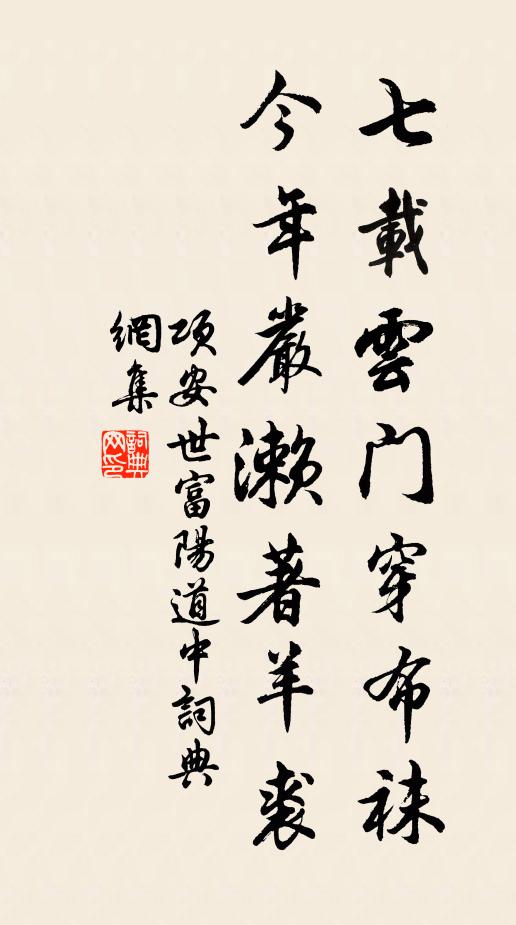 七載雲門穿布袜
今年嚴濑著羊裘
項安世富陽道中詞典
網集
詞典
网印